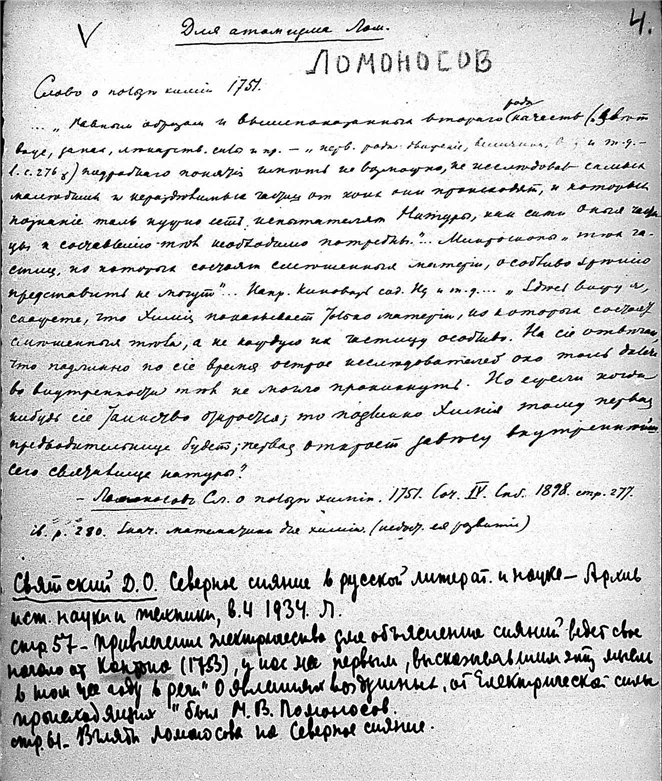 4.
Для атомизма Лом.
ЛОМОНОСОВ
Слово о пользѣ химіи 1751.
... „Равнымъ образомъ и вышепоказанныхъ втораго рода качествъ (. Цвѣт
вкус, запах, лекарств. силы и пр. – „перв. рода: движеніе, величина, и т.д. –
l. c. 276) подробнаго понятія имѣть не возможно, не изслѣдовавъ самыхъ
малѣйшихъ и нераздѣлимыхъ частиц от коих они происходят, и которыхъ
познаніе толь нужно есть испытателям Натуры, как сами оныя части-
цы к составленію тѣлъ необходимо потребны."... Микроскопы „ тѣх ча-
стиц, из которых состоят смѣшенныя матеріи, особливо зрѣнію
представить не могут"... Напр. киноварь сод. Hg и т.д.... „Здѣсь вижу я,
скажете, что Химія показывает только матеріи, из которых состоят
смѣшенныя тѣла, а не каждую их частицу особливо. На сіе отвѣчаю
что подлинно по сіе время острое изслѣдователей око толь далече
во внутренности тѣл не могло проникнуть. Но ежели когда
нибудь сіе таинство откроется; то подлинно Химія тому первая
предводительница будет; первая откроет завѣсу внутреннѣйш.
сего святилища натуры".
– Ломоносовъ Сл. о пользѣ химіи. 1751. Соч. IV. Спб. 1898. стр. 277.
ib. p. 280. Знач. математики для химіи. (недост. ея развитія)
Святский Д.О. Северное сияние в русской литерат. и науке – Архив
ист. науки и техники, в. 4 1934. Л.
стр 57 – привлечение электричества для объяснения сияний ведет свое
начало от Кантона (1753), у нас же первым, высказавшим эту мысль
в том же году в речи "О явлениях воздушных, от Електрической силы
происходящих" был М.В. Ломоносов.
стр. 61. – Взгляды Ломоносова на Северное сияние.